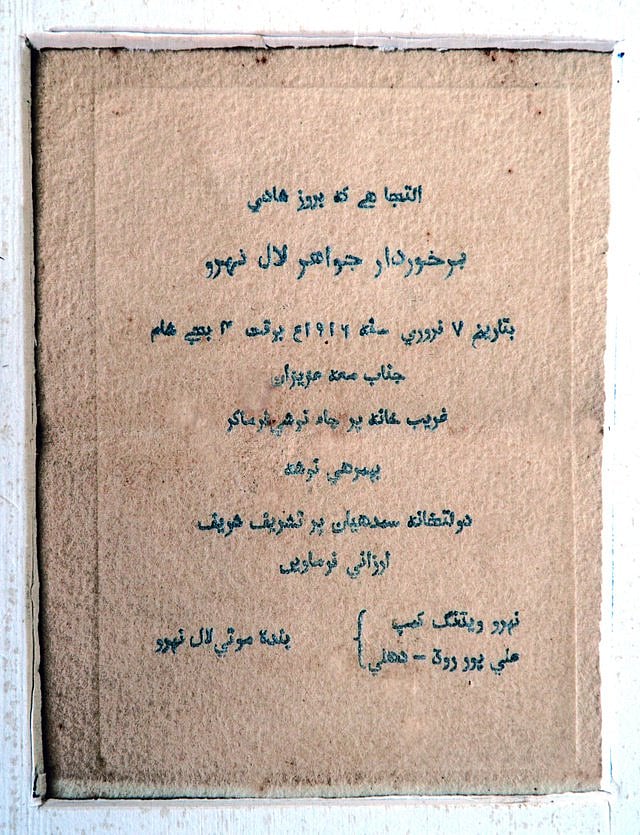 التجا ھے کہ بروز شادي
برخوردار جواھر لال نہرو
بتاریخ ۷ فروري سنہ ۱۹۱۶ع بوقت ۴ بجے شام
جناب معہ عزیزان
غریب خانہ پر چاہ نوشي فرماکر
بہمرھي نوشہ
دولتخانہ سمدھیان پر تشریف شریف
ارزاني فرماویں
نہرو ویڈنگ کمپ
علي پور روڈ - دھلي
بندہ موتي لال نہرو